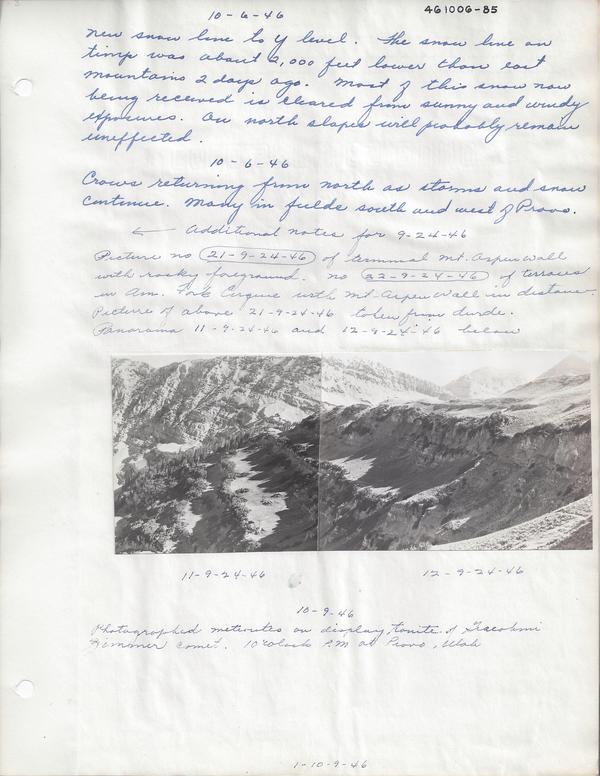 10-6-46
461006-85
New snow line to Y level. The snow line on
timp was about 2,000 feet lower than east
mountains 2 days ago. Most of this snow now
being received is cleared from sunny and windy
exposures. On north slopes will probably remain
uneffected.
10-6-46
Crows returning from north as storms and snow
continue. Many in fields south and west of Provo.
← Additional notes for 9-24-46
Picture no 21-9-24-46 of terminal Mt. Aspen Wall
with rocky foreground. no 22-9-24-46 of terraces
in Am. Fork Cirque with Mt. Aspen Wall in distance.
Picture of above 21-9-24-46 taken from
Panorama 11-9-24-46 and 12-9-24-46 below
11-9-24-46
12-9-24-46
10-9-46
Photographed meteorites on display, tonite of
comet. 10 oclock P.M at Provo, Utah
1-10-9-46